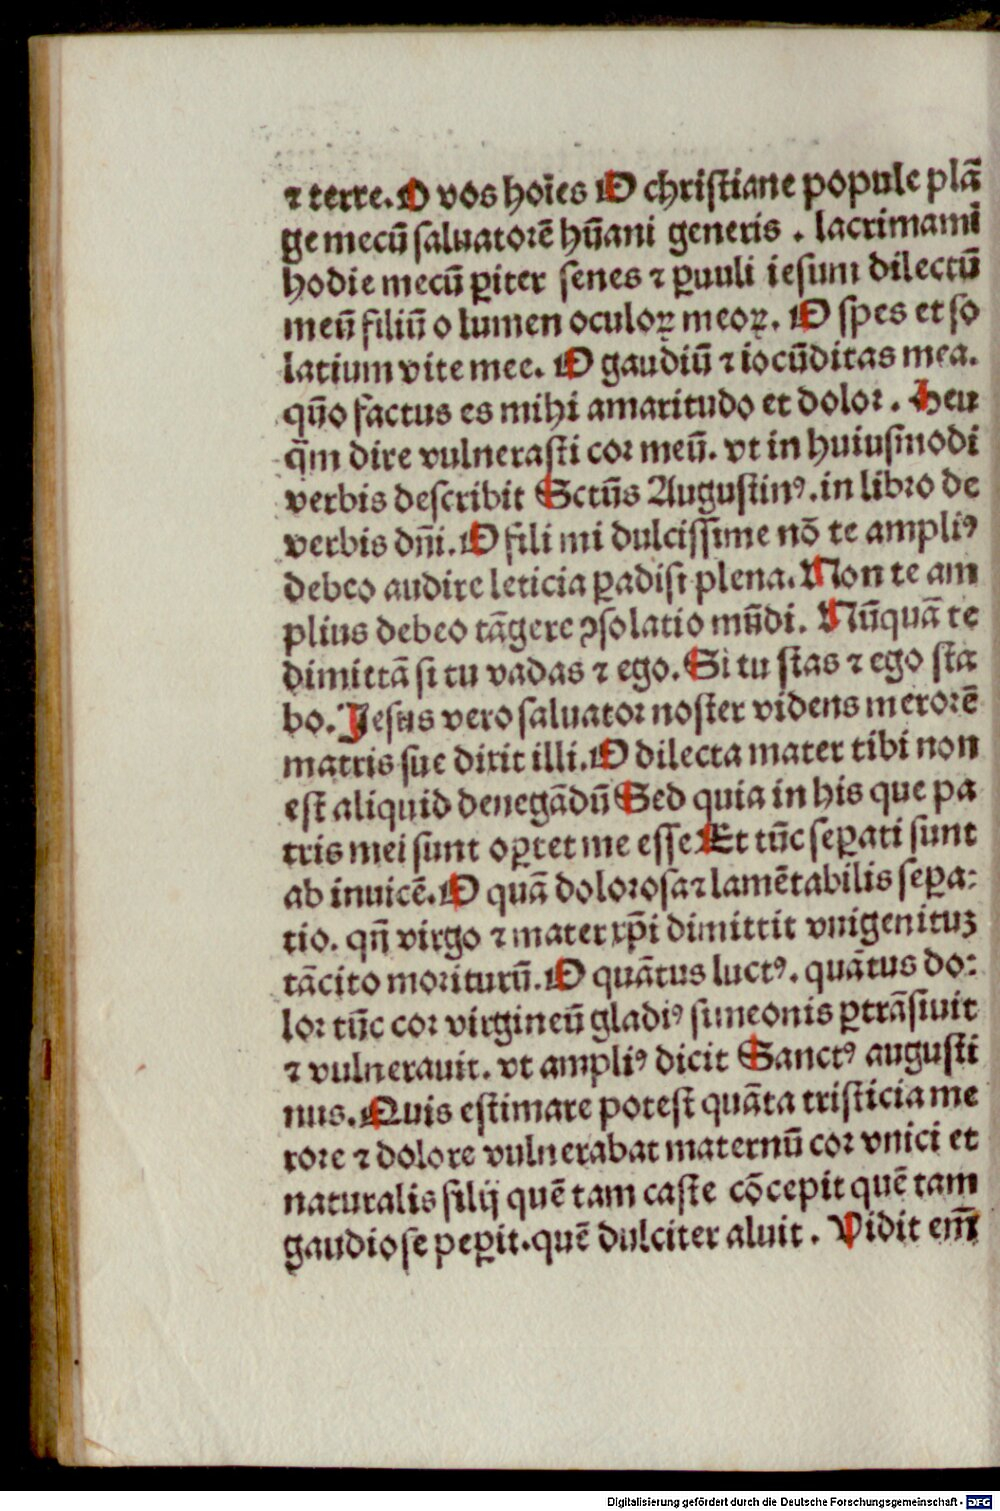 ⁊ terre. O vos hoīes O christiane popule plā
ge mecū saluatorē hūani generis . lacrimamī
hodie mecū ꝑiter senes ⁊ ꝑuuli iesum dilectū
meū filiū o lumen oculoꝝ meoꝝ. O spes et so
latium vite mee. O gaudiū ⁊ iocūditas mea.
qūo factus es mihi amaritudo et dolor . Heu
q̄m dire vulnerasti cor meū. vt in huiusmodi
verbis describit Sctūs Augustinꝰ. in libro de
verbis dn̄i. O fili mi dulcissime nō te ampliꝰ
debeo audire leticia ꝑadisi plena. Non te am
plius debeo tāgere ꝯsolatio mūdi. Nūquā te
dimittā si tu vadas ⁊ ego. Si tu stas ⁊ ego sta
bo. Jesus vero saluator noster videns merorē
matris sue dixit illi. O dilecta mater tibi non
est aliquid denegādū Sed quia in his que pa
tris mei sunt oꝑtet me esse Et tūc seꝑati sunt
ab inuicē. O quā dolorosa ⁊ lamētabilis seꝑa:
tio. qn̄ virgo ⁊ mater xp̄i dimittit vnigenituꝫ
tācito moriturū. O quātus luctꝰ. quātus do:
lor tūc cor virgineū gladiꝰ simeonis ꝑtrāsiuit
⁊ vulnerauit. vt ampliꝰ dicit Sanctꝰ augusti
nus. Quis estimare potest quāta tristicia me
rore ⁊ dolore vulnerabat maternū cor vnici et
naturalis filij quē tam caste cōcepit quē tam
gaudiose peꝑit. quē dulciter aluit . Vidit em̄
Digitalisierung gefördert durch die Deutsche Forschungsgemeinschaft - DFG